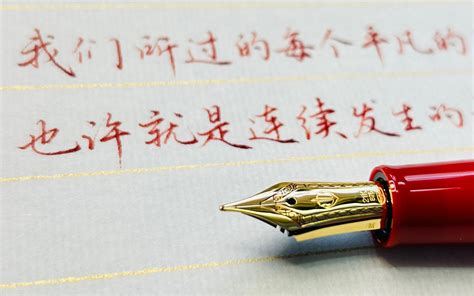 我们所过的每个平凡的
也许就是连续发生的